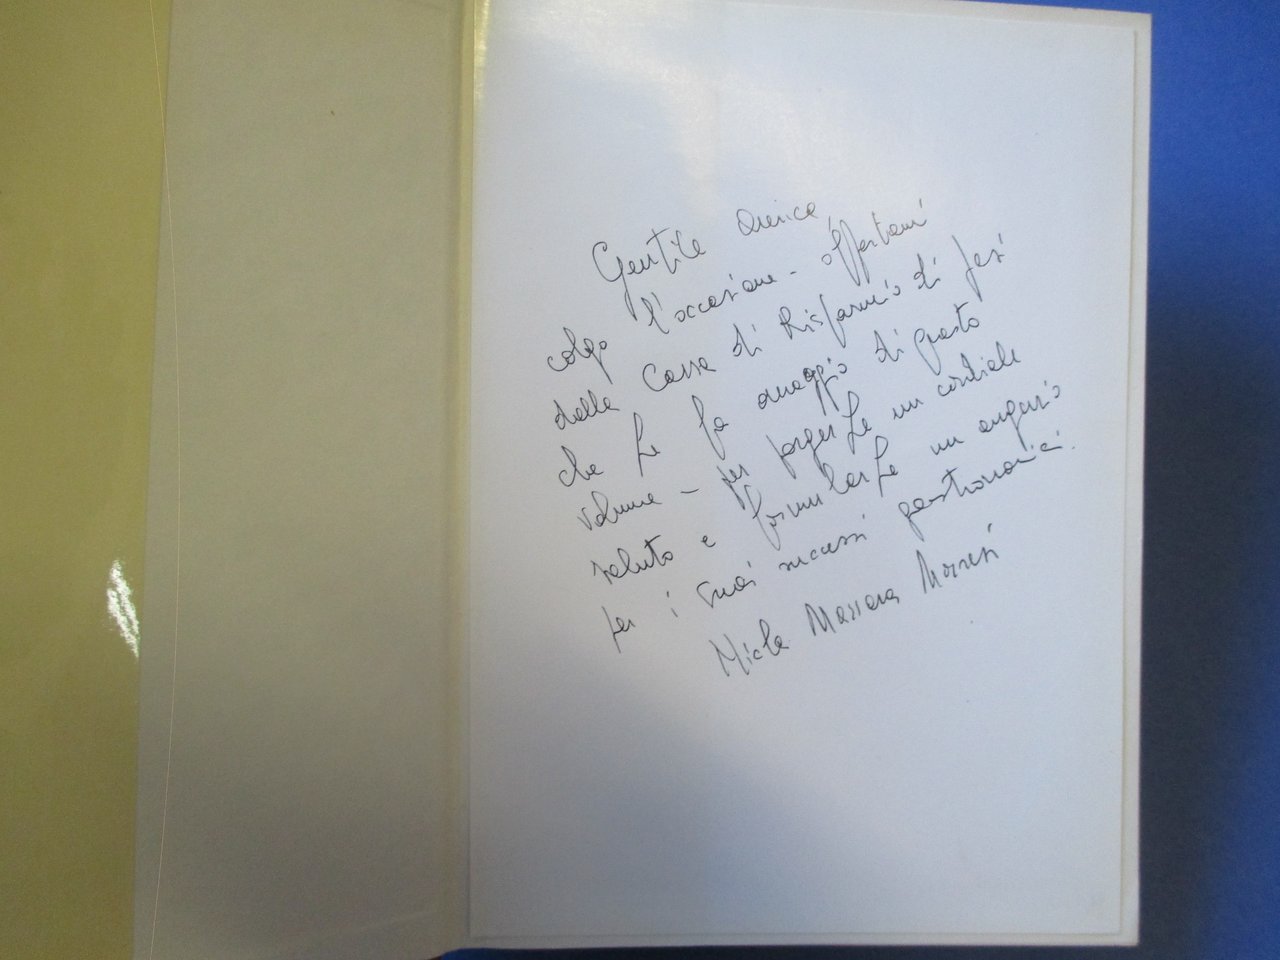 Gentile Amica,
colgo l'occasione - offertami
dalla Cassa di Risparmio di Jesi
che Le fa omaggio di questo
volume - per porgerLe un cordiale
saluto e formularLe un augurio
per i Suoi successi gastronomici.
Nicla Massara Morresi